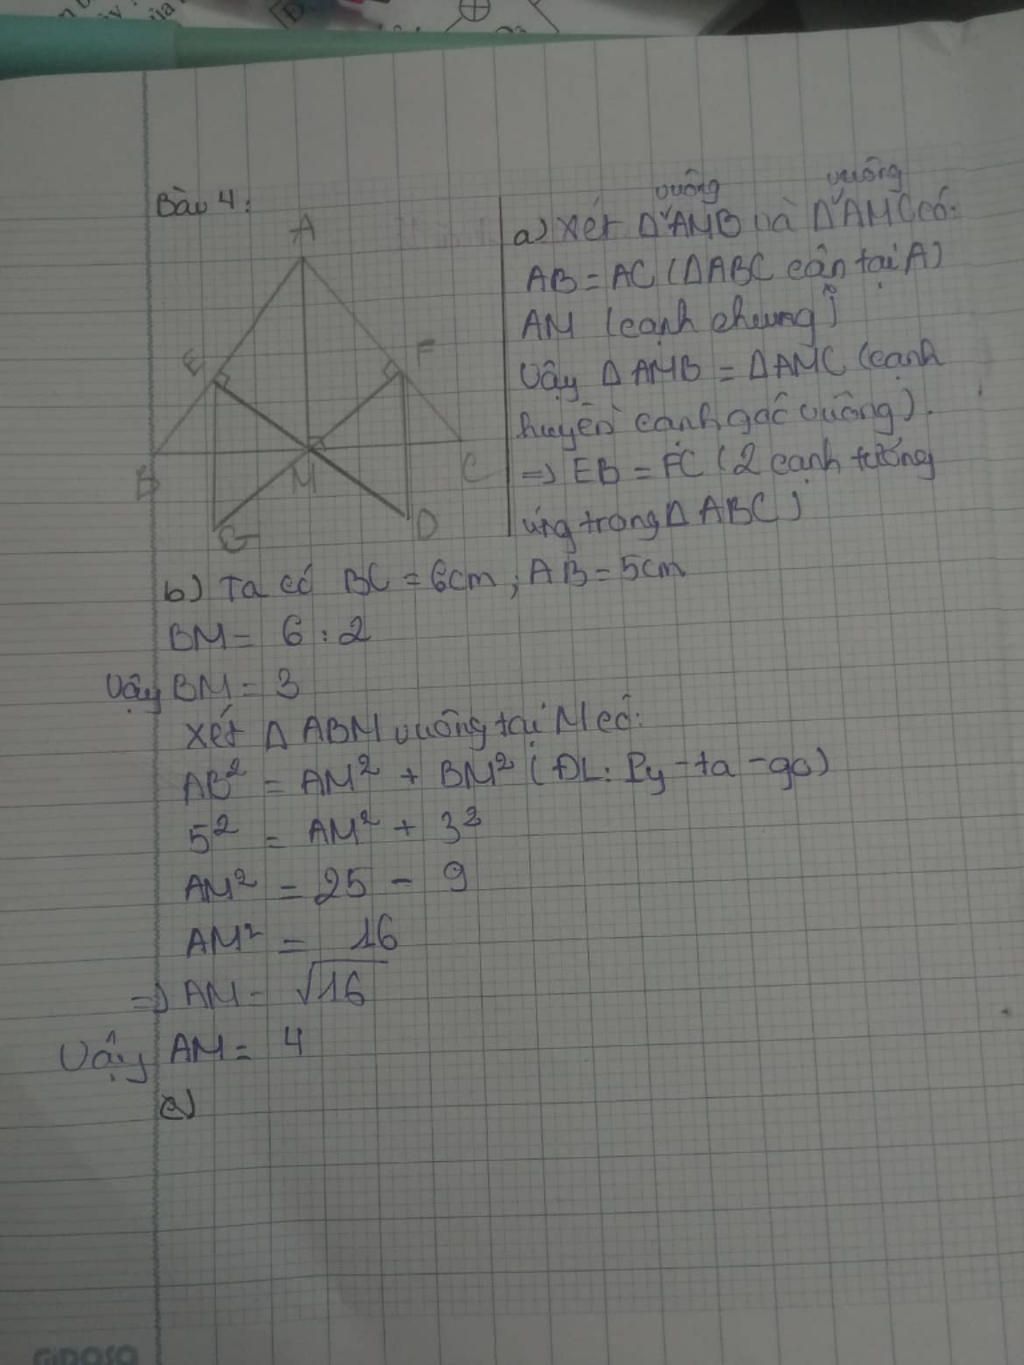 Bài 4:
A
E
F
B
M
C
G
D
vuông vuông
a) Xét Δ AMB và Δ AMC có:
AB = AC (ΔABC cân tại A)
AM (cạnh chung)
Vậy ΔAMB = ΔAMC (cạnh
huyền cạnh góc vuông).
=> EB = FC (2 cạnh tương
ứng trong ΔABC)
b) Ta có BC = 6cm; AB = 5cm
BM = 6 : 2
Vậy BM = 3
Xét Δ ABM vuông tại M có:
AB² = AM² + BM² (ĐL: Py-ta-go)
5² = AM² + 3²
AM² = 25 - 9
AM² = 16
=> AM = √16
Vậy AM = 4
c)